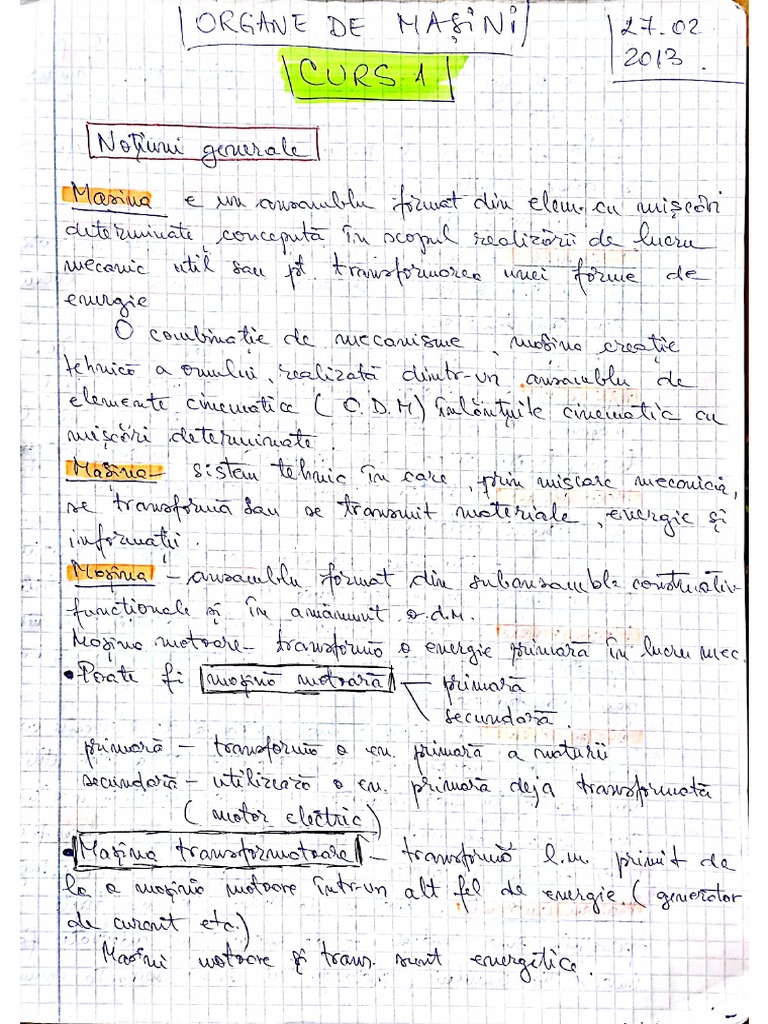 ORGANE DE MAȘINI
27.02
2013.
CURS 1
Noțiuni generale
Mașina e un ansamblu format din elem. cu mișcări
determinate, concepută în scopul realizării de lucru
mecanic util sau pt transformarea unei forme de
energie
O combinație de mecanisme, mașina creație
tehnică a omului, realizată dintr-un ansamblu de
elemente cinematice (O.D.M) înlănțuite cinematic cu
mișcări determinate.
Mașina - sistem tehnic în care, prin mișcare mecanică,
se transformă sau se transmit materiale, energie și
informații.
Mașina - ansamblu format din subansamble constructiv-
funcționale și în amănunt o.d.m.
Mașina motoare - transformă o energie primară în lucru mec.
• Poate fi mașină motoară - primară
secundară.
primară - transformă o en. primară a naturii
secundară - utilizează o en. primară deja transformată
(motor electric)
• Mașina transformatoare - transformă l.m. primit de
la o mașină motoare într-un alt fel de energie. (generator
de curent etc.)
Mașini motoare și tran. sunt energetice.